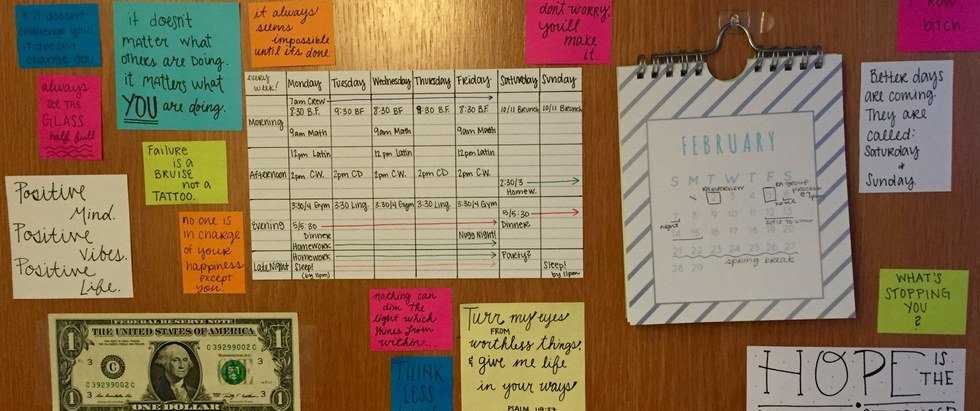 if it doesn't
challenge you,
it doesn't
change you
it doesn't
matter what
others are doing.
it matters what
YOU are doing.
it always
seems
impossible
until its done
don't worry,
you'll
make
it.
bitch.
always
see the
GLASS
half full
Failure
is a
BRUISE
not a
TATTOO.
Positive
Mind.
Positive
Vibes.
Positive
Life.
no one is
in charge
of your
happiness
except
you!
every week! Monday Tuesday Wednesday Thursday Friday Saturday Sunday
7am Crew
Morning 8:30 B.F. 9:30 BF 8:30 BF 8:30 BF 8:30 BF 10/11 Brunch 10/11 Brunch
9am Math 9am Math 9am Math
12pm Latin 12pm Latin 12pm Latin
Afternoon 2pm C.W. 2pm CD 2pm C.W. 2pm CD 2pm C.W. 2:30/3 Homew.
3:30/4 Gym 3:30 Ling. 3:30/4 Gym 3:30 Ling. 3:30/4 Gym
Evening 5/5:30 5/5:30
Dinner Nugg Night! Dinner
Homework
Late Night Homework Party?
Sleep! Sleep!
(by 11pm) by 11pm
FEBRUARY
S M T W T F S
14 15
21 22
28 29
spring break
Better days
are coming.
They are
called:
Saturday
&
Sunday
WHAT'S
STOPPING
YOU
?
nothing can
dim the
light which
shines from
within...
THINK
LESS
Turn my eyes
FROM
worthless things,
& give me life
in your ways
PSALM 119:37
HOPE IS
THE
FEDERAL RESERVE NOTE
THE UNITED STATES OF AMERICA
C 39299002 C
C 39299002 C
1
1
3
3
3
3
ONE DOLLAR